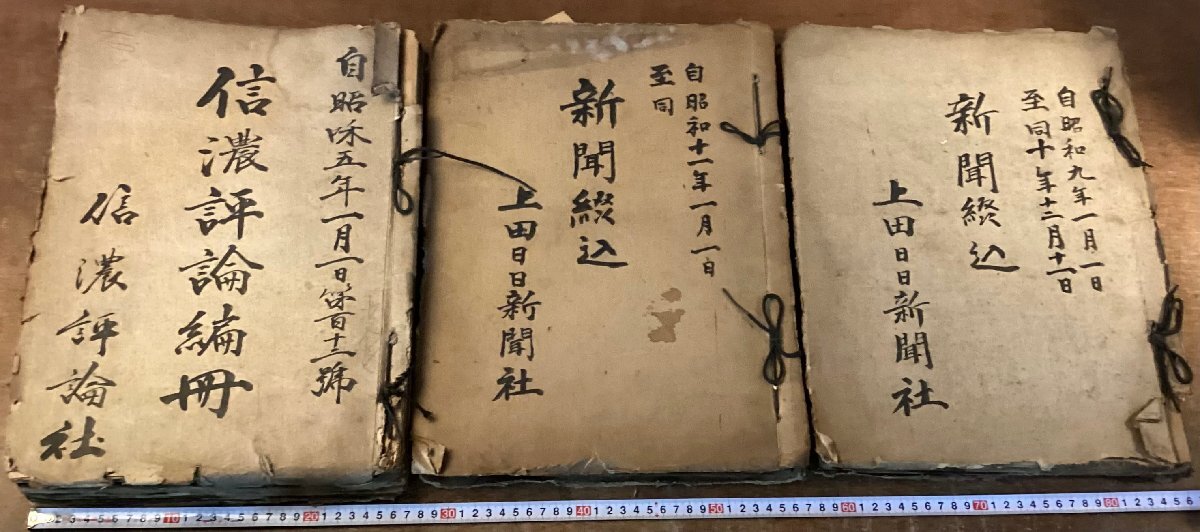 自昭咊五年一月一日第百十二號
信濃評論編冊
信濃評論社
自昭和十一年一月一日
至同
新聞綴込
上田日日新聞社
自昭和九年一月一日
至同十年十二月十一日
新聞綴込
上田日日新聞社
3 4 5 6 7 8 9 10 1 2 3 4 5 6 7 8 9 20 1 2 3 4 5 6 7 8 9 30 1 2 3 4 5 6 7 8 9 40 1 2 3 4 5 6 7 8 9 50 1 2 3 4 5 6 7 8 9 60 1 2 3 4 5 6 7 8 9 70 1 2 3 4 5 6 7 8 9 80 1 2 3 4 5 6